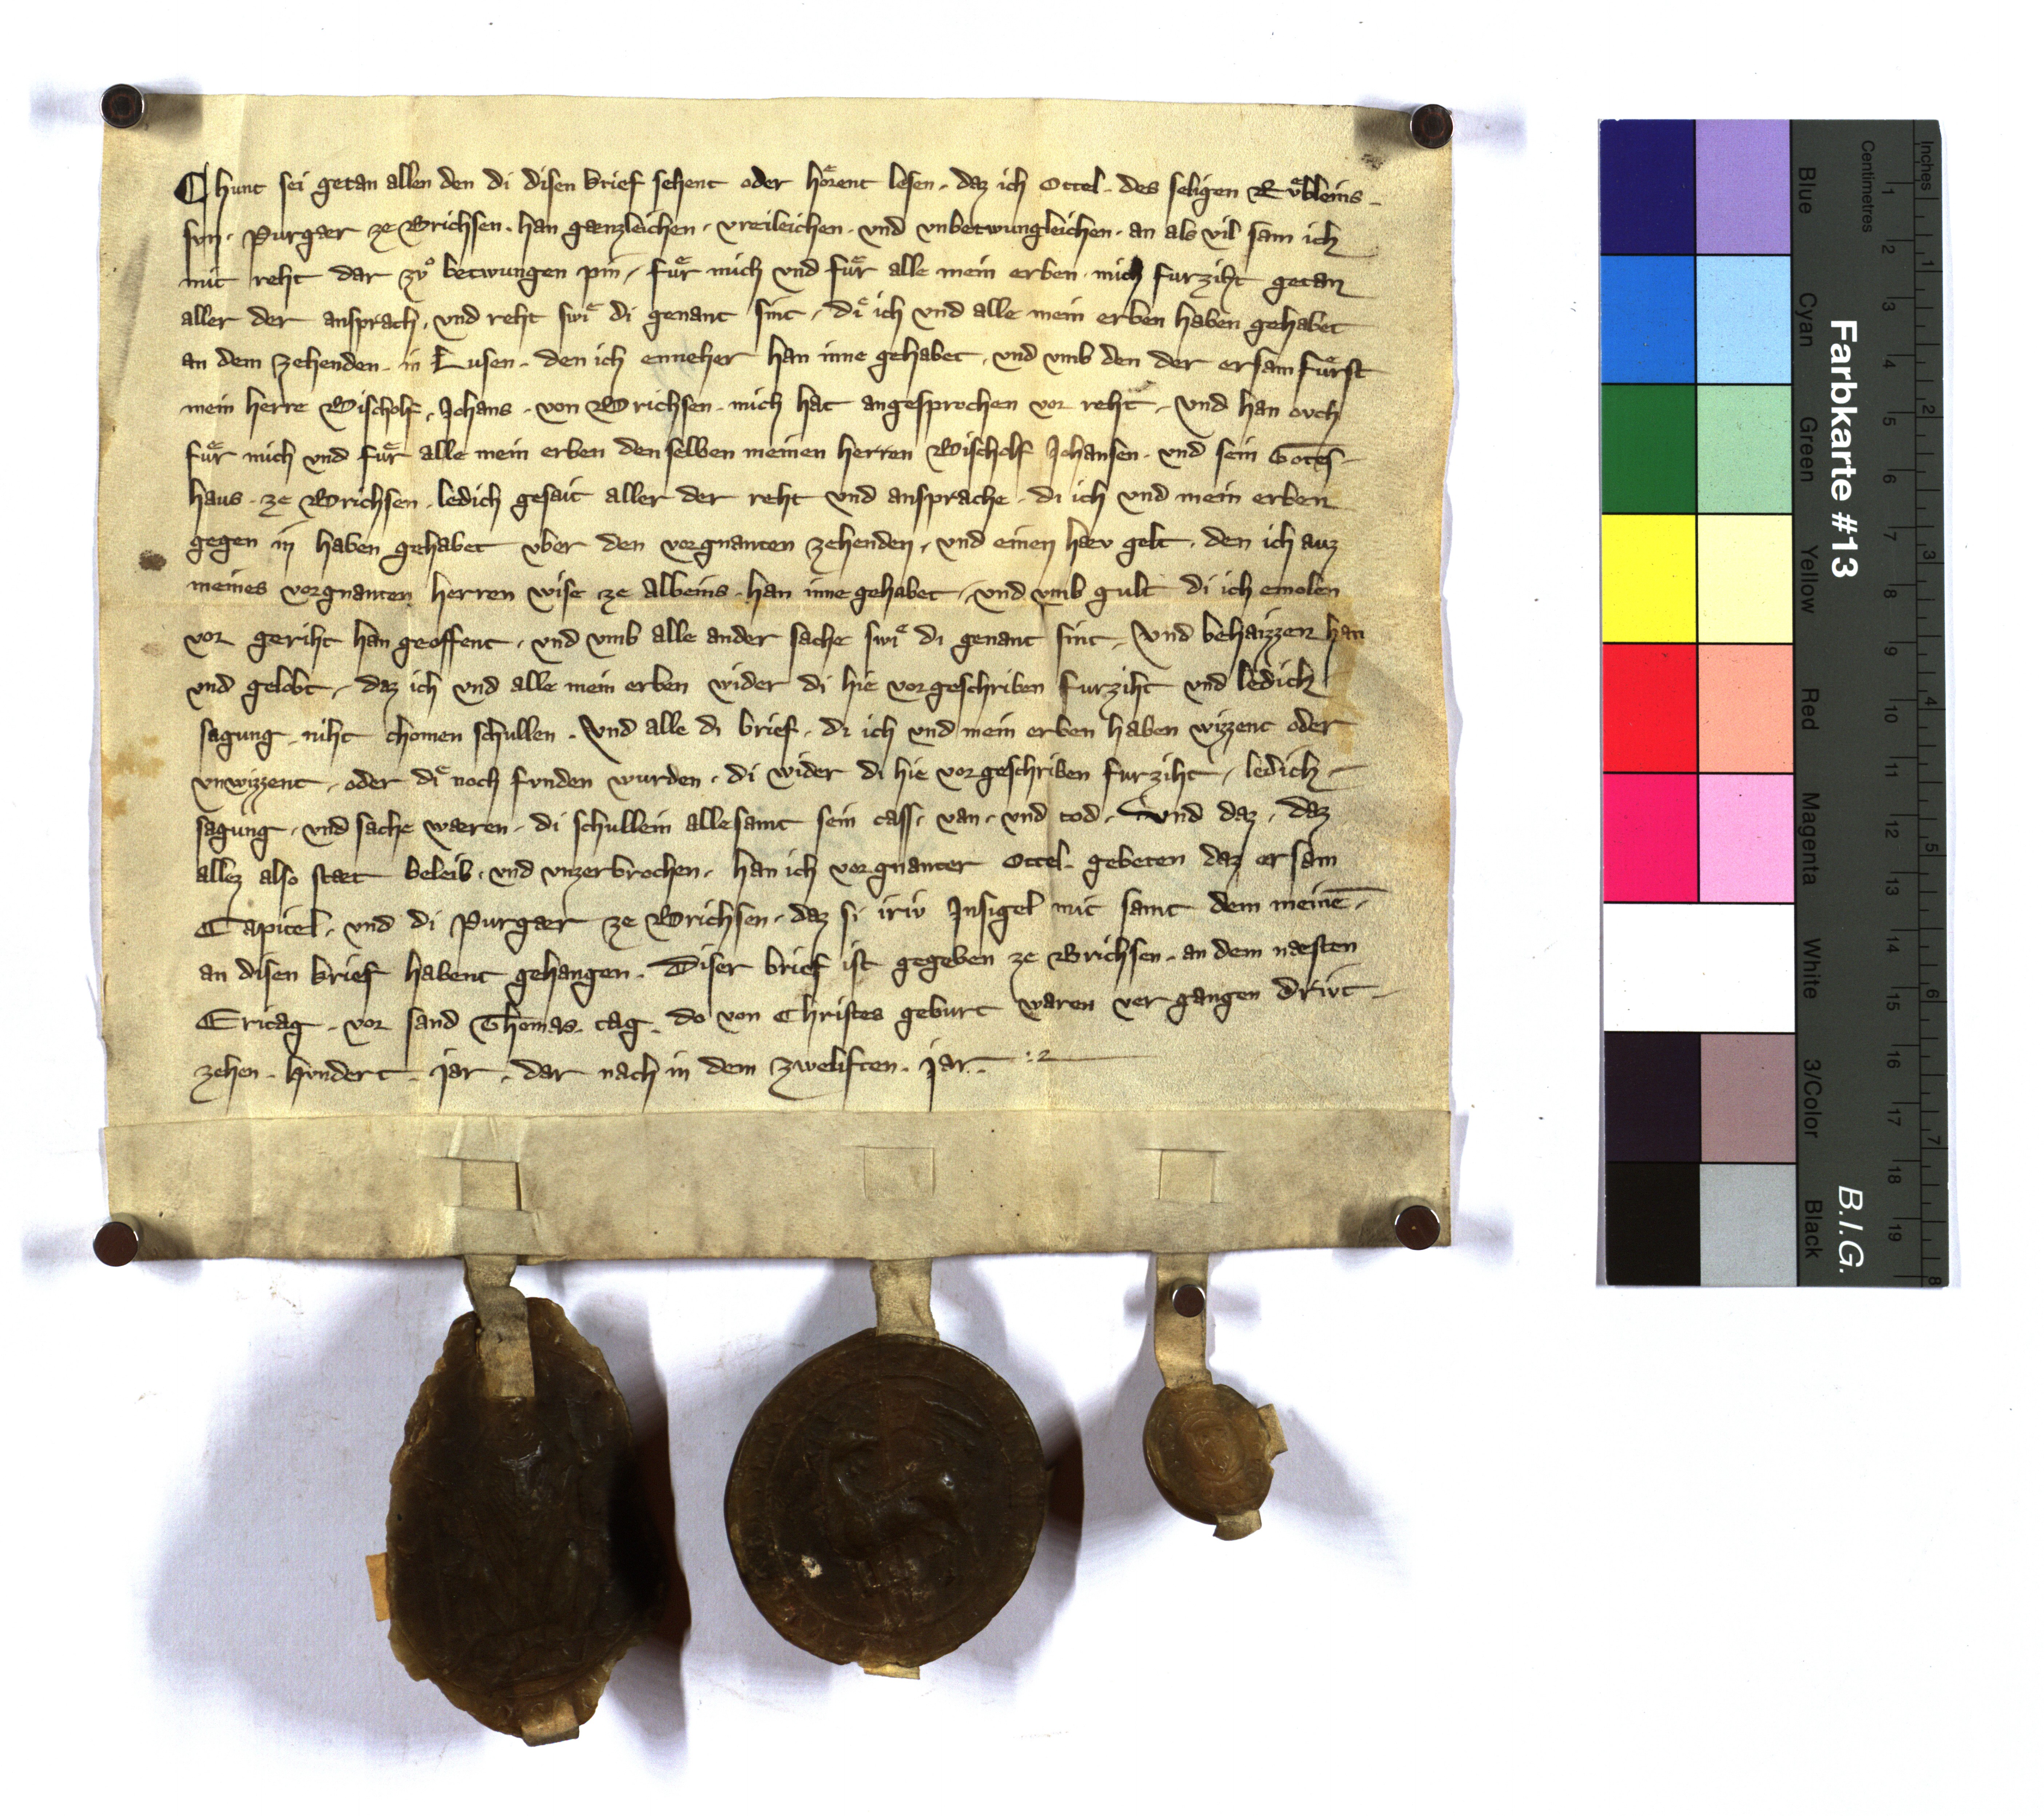 Chunt sei getan allen den di disen brief sehent oder hoͤrent lesen. daz ich Ottel. des seligen Ruͤbleins.
svn. Purgær ze Brichsen. han gænzleichen. vreileichen. vnd vnbetwungleichen. an als vil sam ich
mit reht dar zvͦ betwungen pin. fuͤr mich vnd fuͤr alle mein erben mich furziht getan
aller der ansprach. vnd reht swiͤ di genant sint. diͤ ich vnd alle mein erben haben gehabet
an dem Zehenden. in Lusen. den ich enneher han inne gehabet. vnd vmb den der ersam fuͤrst
mein herre Bischolf. Johans. von Brichsen. mich hat angesprochen vor reht. Vnd han ovch
fuͤr mich vnd fuͤr alle mein erben den selben meinen herren Bischolf Johansen. vnd sein Gotes-
haus. ze Brichsen. ledich gesait aller der reht vnd ansprache. di ich vnd mein erben
gegen in haben gehabet vber den vorgnanten zehenden. vnd einen hæv gelt. den ich auz
meines vorgnanten herren wise ze Albeins. han inne gehabet. vnd vmb gult di ich emolen
vor geriht han geoffent. vnd vmb alle ander sache swiͤ di genant sint. Vnd behaizzen han
vnd gelobt. daz ich vnd alle mein erben wider di hie vorgeschriben furziht vnd ledich
sagung. niht chomen schullen. Vnd alle di brief. di ich vnd mein erben haben wizzent oder
vnwizzent. oder diͤ noch fvnden wurden. di wider di hie vorgeschriben furziht. ledich-
sagung. vnd sache wæren. di schullein allesamt sein cass. van. vnd tod. Vnd daz. daz
allez also stæt beleib. vnd vnzerbrochen. han ich vorgnanter Ottel. gebeten daz ersam
Capitel. vnd di Purgær ze Brichsen. daz si iriv Insigel mit samt dem meinē.
an disen brief habent gehangen. Diser brief ist gegeben ze Brichsen. an dem næsten
Eritag. vor sand Thomas. tag. do von Christes geburt waren vergangen drivt-
zehen. hvndert. jar. dar nach in dem zweliften. jar.
Farbkarte #13
B.I.G.
Blue Cyan Green Yellow Red Magenta White 3/Color Black
Centimetres 1 2 3 4 5 6 7 8 9 10 11 12 13 14 15 16 17 18 19
Inches 1 2 3 4 5 6 7 8